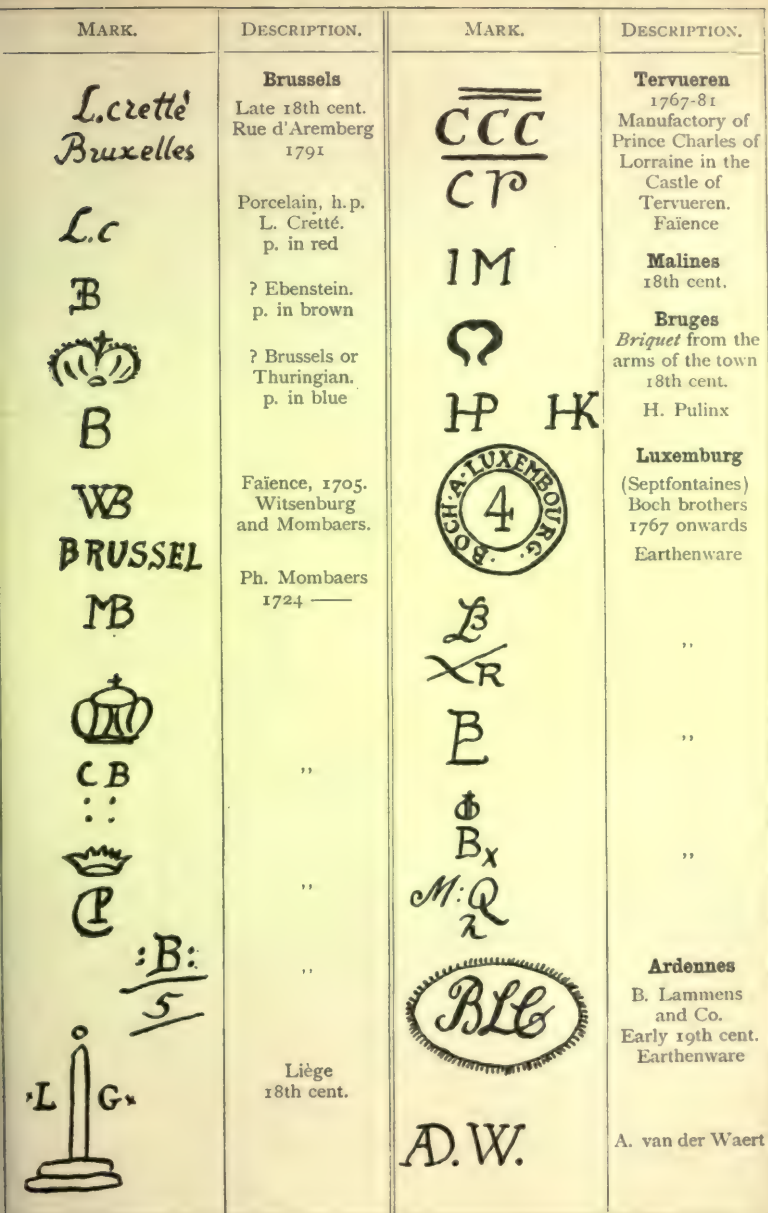 MARK.
DESCRIPTION.
L.cretté
Bruxelles
Brussels
Late 18th cent.
Rue d'Aremberg
1791
L.c
Porcelain, h.p.
L. Crétté.
p. in red
B
? Ebenstein.
p. in brown
B
? Brussels or
Thuringian.
p. in blue
WB
BRUSSEL
Faïence, 1705.
Witsenburg
and Mombaers.
MB
Ph. Mombaers
1724 ——
C B
,,
CP
,,
:B:
5
,,
L G
Liège
18th cent.
MARK.
DESCRIPTION.
CCC
CP
Tervueren
1767-81
Manufactory of
Prince Charles of
Lorraine in the
Castle of
Tervueren.
Faïence
IM
Malines
18th cent.
Bruges
Briquet from the
arms of the town
18th cent.
HP HK
H. Pulinx
BOCH·A·LUXEMBOURG·
4
Luxemburg
(Septfontaines)
Boch brothers
1767 onwards
Earthenware
LB
R
,,
B
L
,,
Bx
,,
M:Q
2
BLC
Ardennes
B. Lammens
and Co.
Early 19th cent.
Earthenware
AD.W.
A. van der Waert